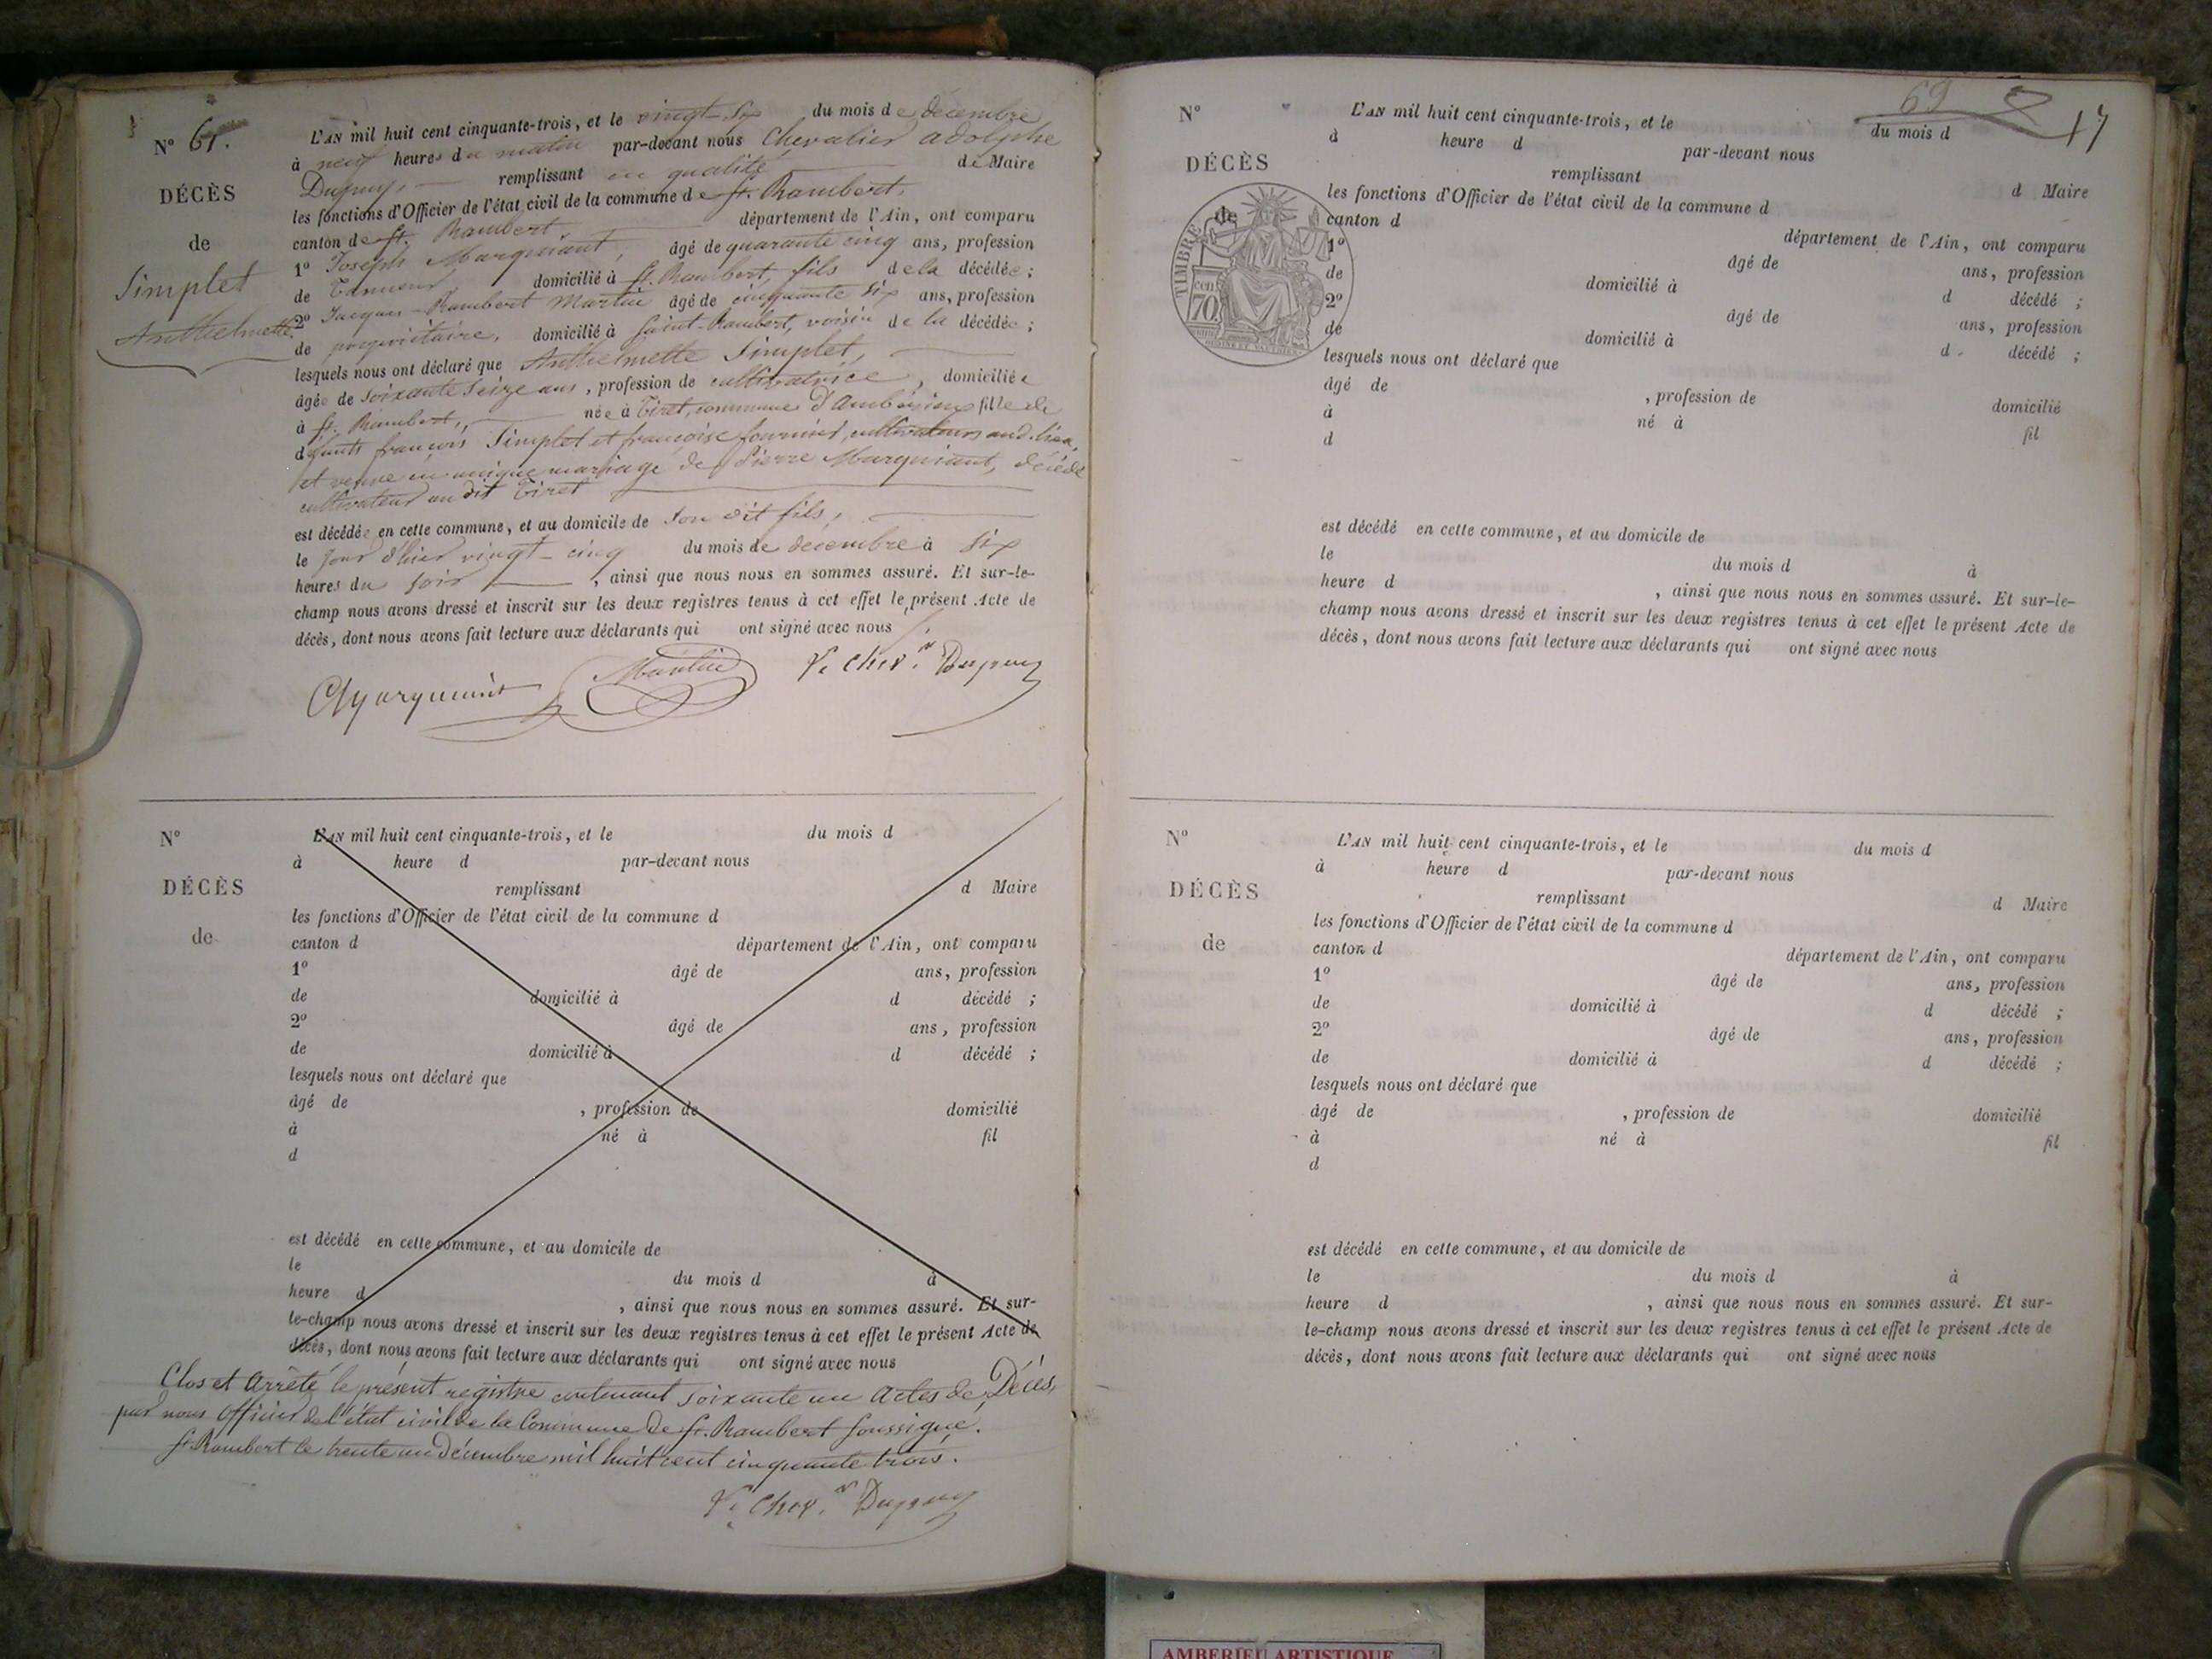 N° 61.
DÉCÈS
de
Simplet
Anthelmette
L'AN mil huit cent cinquante-trois, et le vingt-six du mois de décembre
à neuf heures du matin par-devant nous Chevalier adolphe
Dupuy, remplissant en qualité de Maire
les fonctions d'Officier de l'état civil de la commune de St. Rambert,
canton de St. Rambert, département de l'Ain, ont comparu
1° Joseph Marquiant, âgé de quarante cinq ans, profession
de Tanneur, domicilié à St. Rambert, fils de la décédée ;
2° Jacques-Rambert Martin âgé de cinquante six ans, profession
de propriétaire, domicilié à Saint-Rambert, voisin de la décédée ;
lesquels nous ont déclaré que Anthelmette Simplet,
âgée de soixante seize ans, profession de cultivatrice, domiciliée
à St. Rambert, née à Tiret, commune d'Ambérieux fille de
défunts françois Simplet et françoise fournier, cultivateurs aud. lieu,
et veuve en unique mariage de Pierre Marquiant, décédé
cultivateur au dit Tiret
est décédée en cette commune, et au domicile de Son dit fils,
le jour d'hier vingt-cinq du mois de décembre à six
heures du soir, ainsi que nous nous en sommes assuré. Et sur-le-
champ nous avons dressé et inscrit sur les deux registres tenus à cet effet le présent Acte de
décès, dont nous avons fait lecture aux déclarants qui ont signé avec nous
Martin Dupuy
N°
DÉCÈS
de
L'AN mil huit cent cinquante-trois, et le du mois d
à heure d par-devant nous
remplissant d Maire
les fonctions d'Officier de l'état civil de la commune d
canton d département de l'Ain, ont comparu
1° âgé de ans, profession
de domicilié à d décédé ;
2° âgé de ans, profession
de domicilié à d décédé ;
lesquels nous ont déclaré que
âgé de , profession de domicilié
à né à fil
d
est décédé en cette commune, et au domicile de
le du mois d à
heure d , ainsi que nous nous en sommes assuré. Et sur-
le-champ nous avons dressé et inscrit sur les deux registres tenus à cet effet le présent Acte de
décès, dont nous avons fait lecture aux déclarants qui ont signé avec nous
Clos et Arrêté le présent registre contenant soixante un actes de Décès,
par nous Officier de l'état civil de la Commune de St. Rambert soussigné.
St. Rambert le trente un décembre mil huit cent cinquante trois.
Dupuy
69
17
N°
DÉCÈS
de
TIMBRE
70
L'AN mil huit cent cinquante-trois, et le du mois d
à heure d par-devant nous
remplissant d Maire
les fonctions d'Officier de l'état civil de la commune d
canton d département de l'Ain, ont comparu
1° âgé de ans, profession
de domicilié à d décédé ;
2° âgé de ans, profession
de domicilié à d décédé ;
lesquels nous ont déclaré que
âgé de , profession de domicilié
à né à fil
d
est décédé en cette commune, et au domicile de
le du mois d à
heure d , ainsi que nous nous en sommes assuré. Et sur-le-
champ nous avons dressé et inscrit sur les deux registres tenus à cet effet le présent Acte de
décès, dont nous avons fait lecture aux déclarants qui ont signé avec nous
N°
DÉCÈS
de
L'AN mil huit cent cinquante-trois, et le du mois d
à heure d par-devant nous
remplissant d Maire
les fonctions d'Officier de l'état civil de la commune d
canton d département de l'Ain, ont comparu
1° âgé de ans, profession
de domicilié à d décédé ;
2° âgé de ans, profession
de domicilié à d décédé ;
lesquels nous ont déclaré que
âgé de , profession de domicilié
à né à fil
d
est décédé en cette commune, et au domicile de
le du mois d à
heure d , ainsi que nous nous en sommes assuré. Et sur-
le-champ nous avons dressé et inscrit sur les deux registres tenus à cet effet le présent Acte de
décès, dont nous avons fait lecture aux déclarants qui ont signé avec nous
AMBERIEU ARTISTIQUE